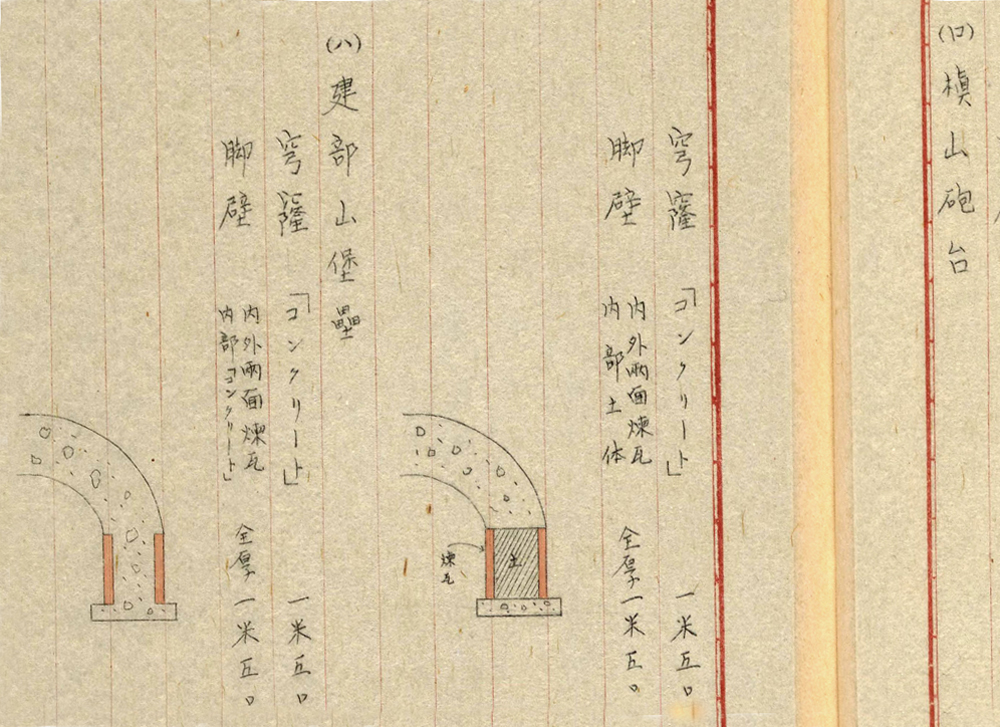 (ロ)槙山砲台
穹窿 「コンクリート」 一米五〇
脚壁 内外両面煉瓦
内部土体 全厚一米五〇
煉瓦
土
(ハ)建部山堡塁
穹窿 「コンクリート」 一米五〇
脚壁 内外両面煉瓦
内部「コンクリート」 全厚一米五〇